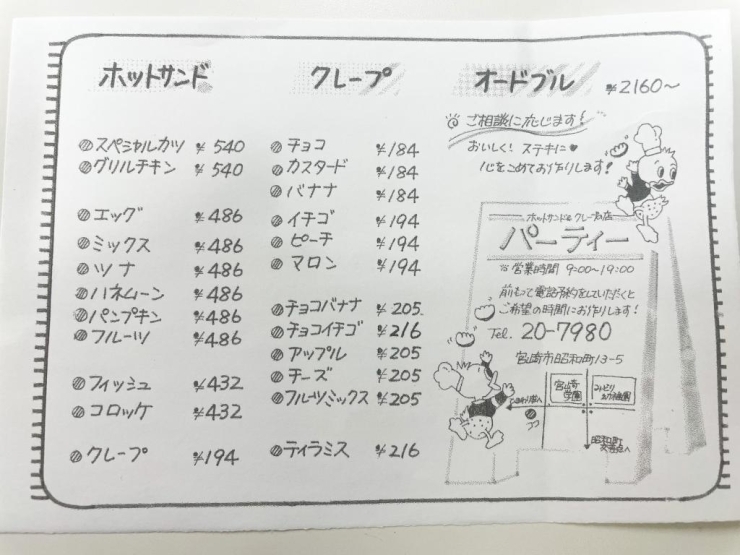 ホットサンド
スペシャルカツ ¥540
グリルチキン ¥540
エッグ ¥486
ミックス ¥486
ツナ ¥486
ハネムーン ¥486
パンプキン ¥486
フルーツ ¥486
フィッシュ ¥432
コロッケ ¥432
クレープ ¥194
クレープ
チョコ ¥184
カスタード ¥184
バナナ ¥184
イチゴ ¥194
ピーチ ¥194
マロン ¥194
チョコバナナ ¥205
チョコイチゴ ¥216
アップル ¥205
チーズ ¥205
フルーツミックス ¥205
ティラミス ¥216
オードブル ¥2160～
ご相談に応じます!
おいしく! ステキに♥
心をこめてお作りします!
ホットサンド&クレープの店
パーティー
営業時間 9:00～19:00
前もって電話予約をしていただくと
ご希望の時間にお作りします!
Tel. 20-7980
宮崎市昭和町13-5
宮崎
学園
ココ
昭和町
交差点へ